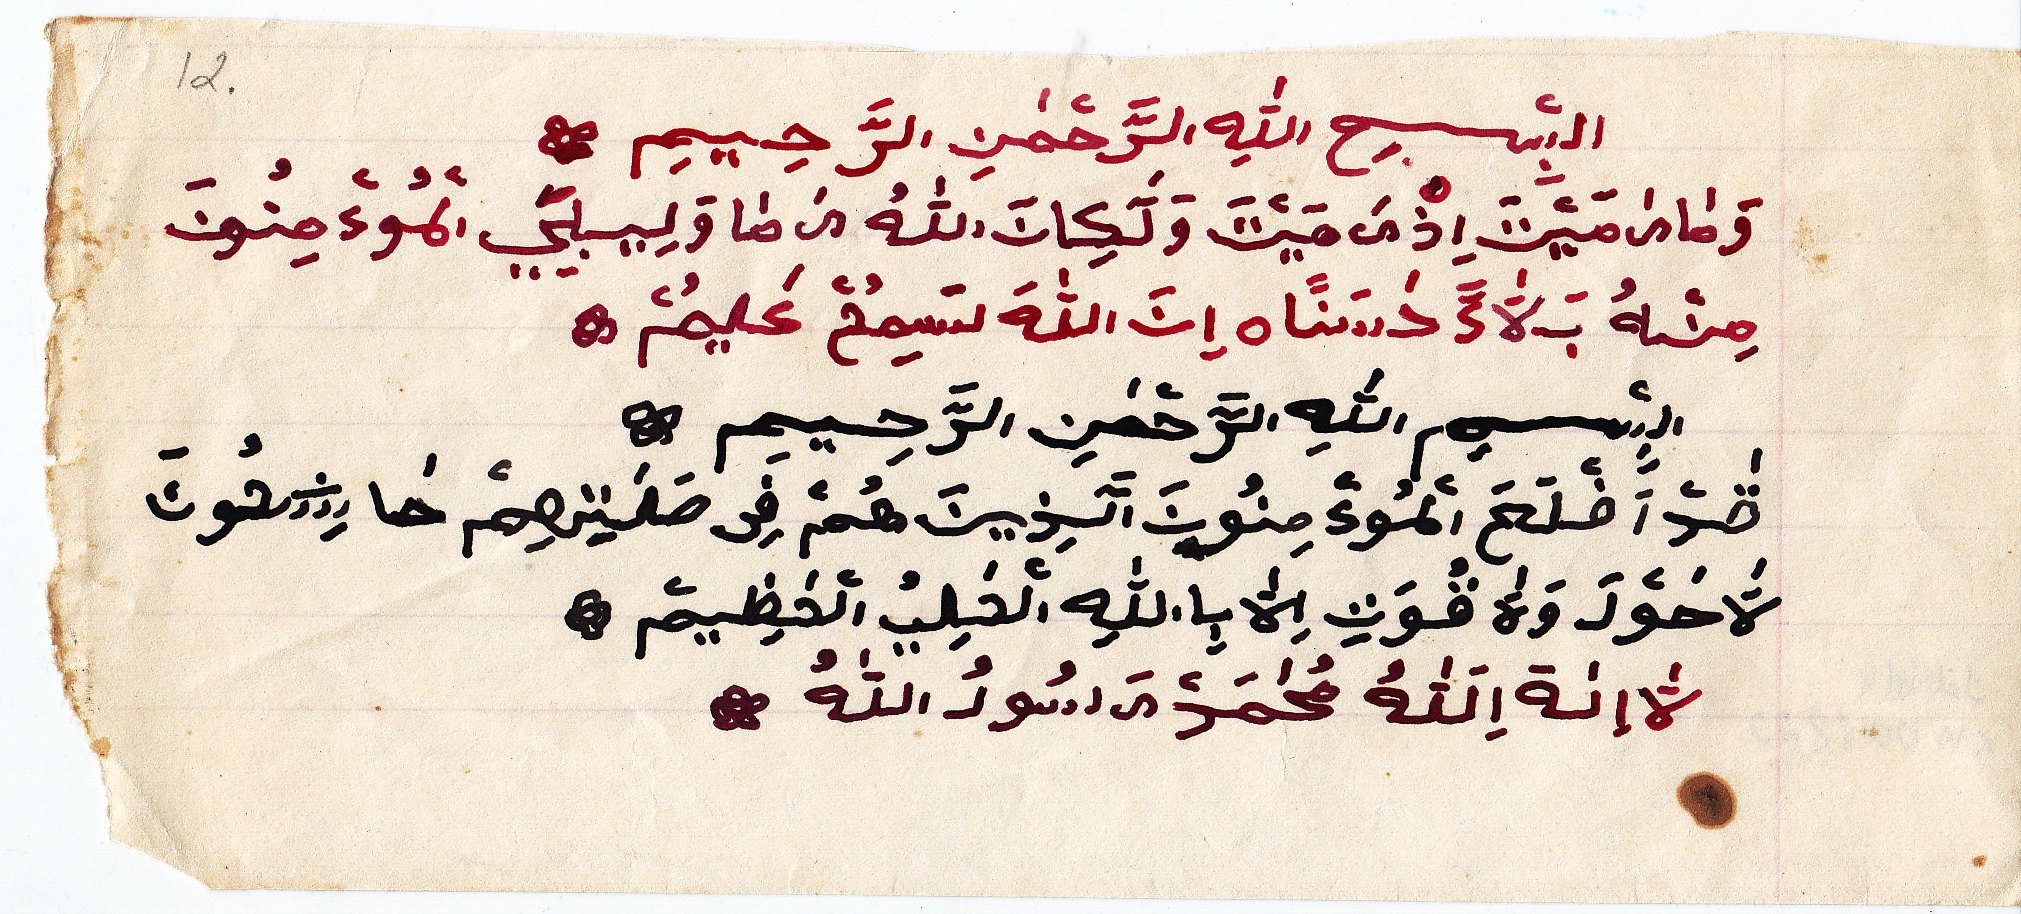 12.
البِسيمِ اللّٰهِ الرَّحْمٰنِ الرَّحِيمِ
وَمٰارَمَيْتَ اِذْرَمَيْتَ وَلَكِنَ اللّٰهُ رَمٰا وَلِيبلِيَ الْمُوءْمِنُونَ
مِنْهُ بَلَاءً حَسَنًاه اِنَ اللّٰهَ سَمِعٌ عَلِيمٌ
البِسيمِ اللّٰهِ الرَّحْمٰنِ الرَّحِيمِ
قٰدْ اَفْلَحَ الْمُوءْمِنُونَ اَلَذِينَ هُمْ فِى صَلَتِهِمْ خٰاشِعُونَ
لاٰحَوْلَ وَلاٰ قُوَتِ اِلاٰ بِااللّٰهِ الْعَلِيُ الْعَظِيمْ
لاٰ اِلٰهَ اِلَلّٰهُ مُحٰمَدْ رَسُولُ اللّٰهُ